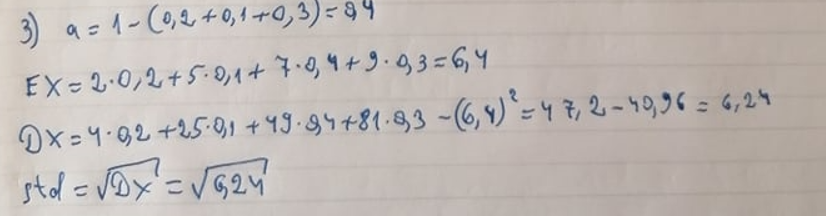 3) a = 1 - (0,2 + 0,1 + 0,3) = 0,4
EX = 2·0,2 + 5·0,1 + 7·0,4 + 9·0,3 = 6,4
DX = 4·0,2 + 25·0,1 + 49·0,4 + 81·0,3 - (6,4)² = 47,2 - 40,96 = 6,24
std = √DX = √6,24